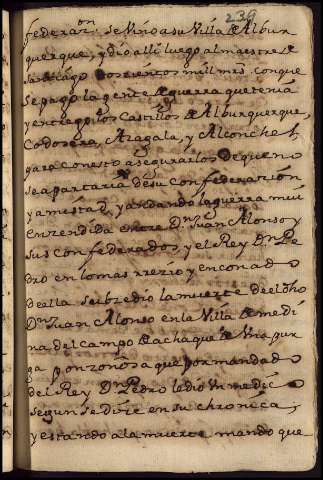 239
federaz.on se Vino a su Villa de Albur
querque, y dio alli luego al maestre de
Santiago doscientos mill mrs. con que
se pago la gente de guerra que tenia
y entregó los Castillos de Alburquerque,
Codosera, Azagala, y Alconchel
para con esto asegurarlos de que no
se apartaria de su confederazión
y amistad, y andando la guerra mui
enzendida entre Dn. Juan Alonso y
sus confederados, y el Rey Dn. Pe
dro en lo mas rrezio y enconado
de alla Subzedio la muerte del dho
Dn. Juan Alonso en la Villa de medi
na del campo de achaque de Vna pur
ga ponzoñosa que por mandado
del Rey Dn. Pedro le dio Vn medico
segun se dize en su chronica,
y estando a la muerte mando que